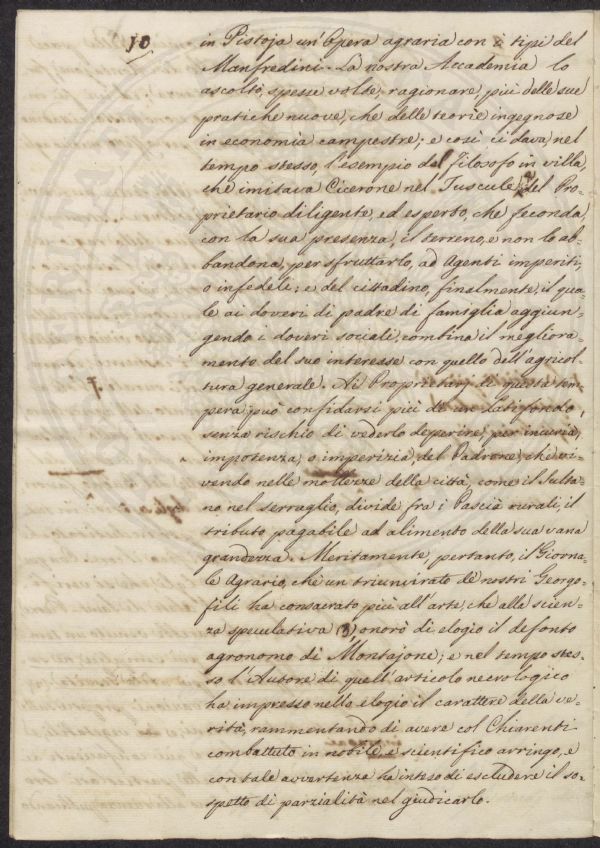 10
in Pistoja un'Opera agraria con i tipi del
Manfredini. La nostra Accademia lo
ascoltò, spesse volte, ragionare, più delle sue
pratiche nuove, che delle teorie ingegnose
in economia campestre; e così ci dava, nel
tempo stesso, l'esempio del filosofo in villa,
che imitava Cicerone nel Tuscule, del Pro-
prietario diligente, ed esperto, che feconda
con la sua presenza, il terreno, e non lo ab-
bandona, per sfruttarlo, ad Agenti imperiti,
o infedeli; e del cittadino, finalmente, il qua-
le ai doveri di padre di famiglia aggiun-
gendo i doveri sociali, combina il migliora-
mento del suo interesse con quello dell'agricol-
tura generale. Ai Proprietarj di questa tem-
pera, può confidarsi più di un latifondo,
senza rischio di vederlo deperire, per incuria,
impotenza, o imperizia, del Padrone, che vi-
vendo nelle mollezze della città, come il Sulta-
no nel serraglio, divide fra i Pascià rurali, il
tributo pagabile ad alimento della sua vana
grandezza. Meritamente, pertanto, il Giorna-
le Agrario, che un triumvirato de' nostri Georgo-
fili ha consacrato più all'arte, che alla scien-
za speculativa (3) onorò di elogio il defonto
agronomo di Montajone; e nel tempo stes-
so l'Autore di quell'articolo necrologico
ha impresso nello elogio il carattere della ve-
rità, rammentando di avere col Chiarenti
combattuto in nobile, e scientifico arringo, e
con tale avvertenza ha inteso di escludere il so-
spetto di parzialità nel giudicarlo.